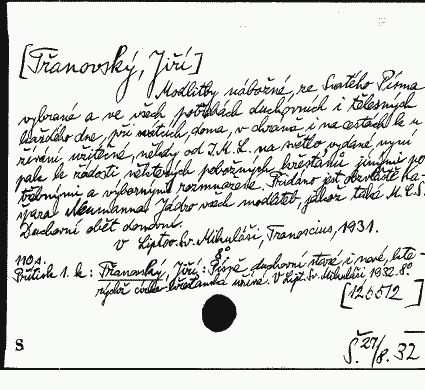 [Třanovský, Jiří]
Modlitby nábožné, ze Svatého Písma
vybrané a ve všech potřebách duchovních i tělesných
každého dne, při svátcích, doma, v chrámě i na cestách k u-
žívání užitečné, někdy od J.M.S. na světlo vydané, nyní
pak k žádosti některých pobožných křesťanů jinými po-
třebnými a výbornými rozmnožené. Přidáno jest obzvláště Ka-
špara Neumanna Jádro všech modliteb, jakož také M.C.S.
Duchovní oběť domovní.
V Liptov. Sv. Mikuláši, Tranoscius, 1931.
110 s. 8°
Přítisk 1. k.: Třanovský, Jiří: Písně duchovní staré i nové, kte-
rýchž církev křesťanská užívá. V Lipt. Sv. Mikuláši 1932. 8°
[126512]
S
Š. 27/8. 32